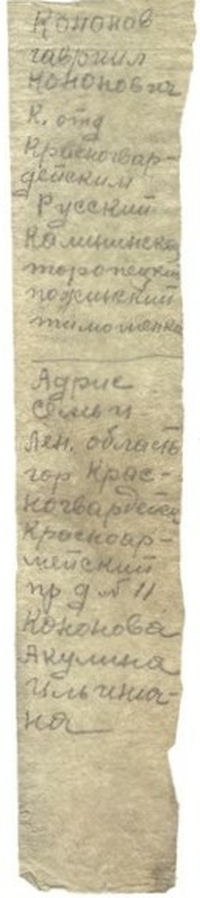 Кононов
гавриил
Кононович
К. отд
Красногвар-
дейским
Русский
Калининска
торопецкий
пожинский
тимошенка
Адрис
Семьи
Лен. область
гор Крас-
ногвардейск
Красноар-
мейский
пр д № 11
Кононова
Акулина
Ильинша-
на